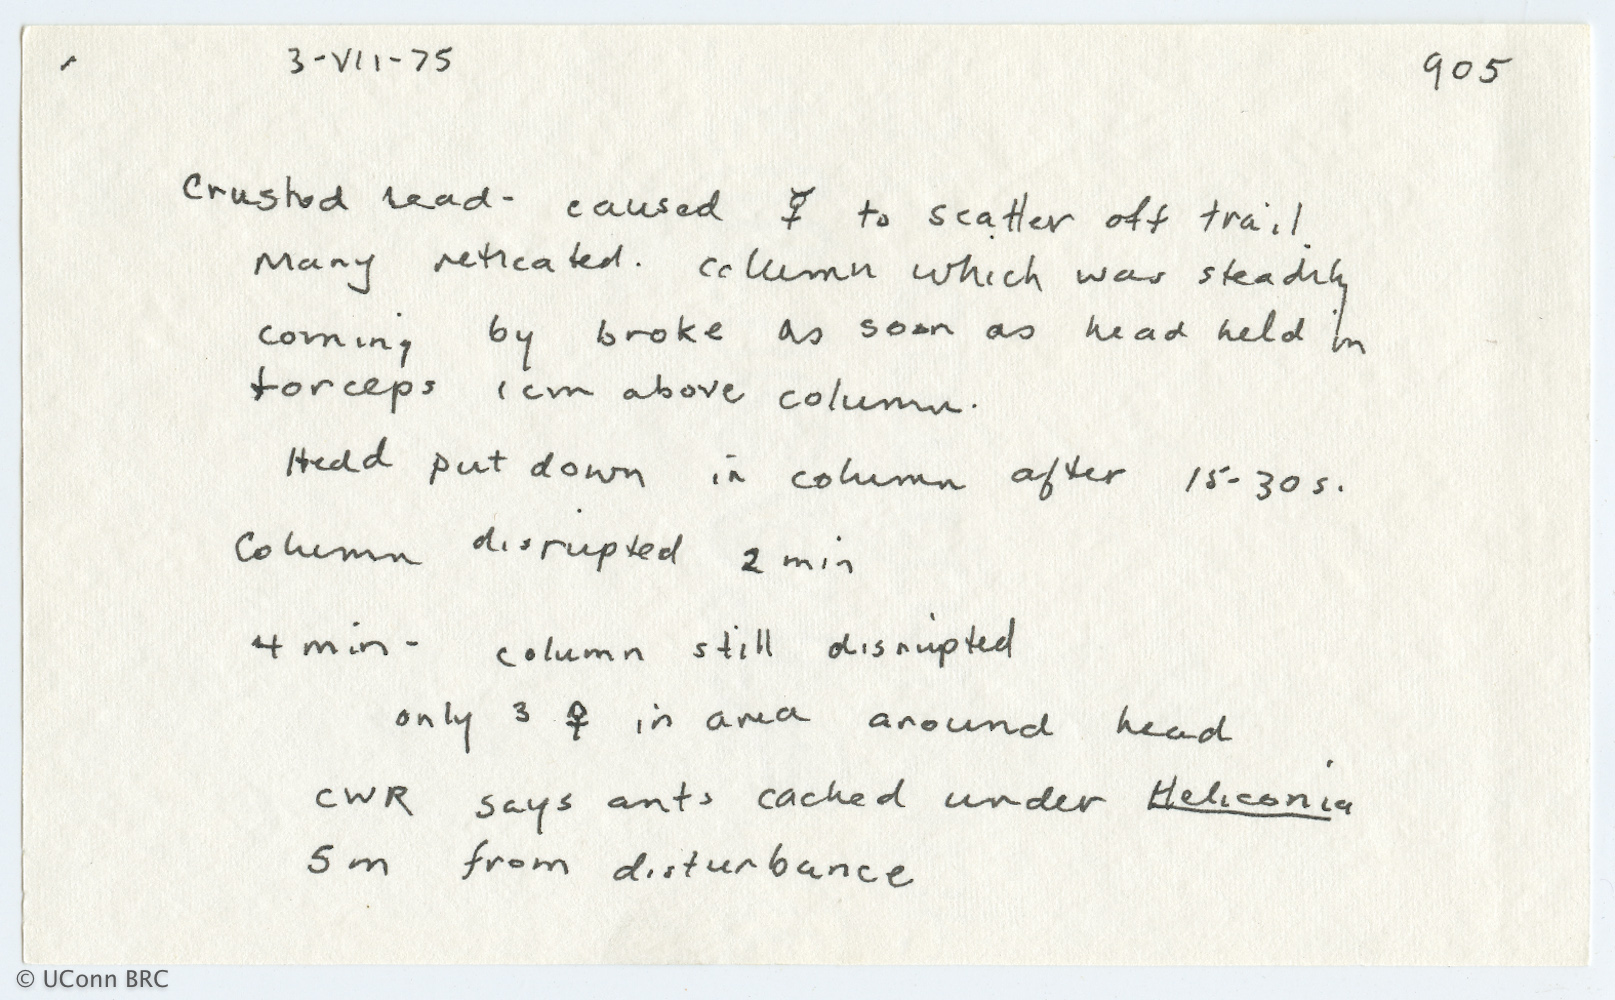 3-VII-75
905
Crushed head- caused ☿ to scatter off trail.
Many retreated. column which was steadily
coming by broke as soon as head held in
forceps 1cm above column.
Head put down in column after 15-30s.
Column disrupted 2 min
4 min- column still disrupted
only 3 ☿ in area around head
CWR says ants cached under Heliconia
5m from disturbance
© UConn BRC